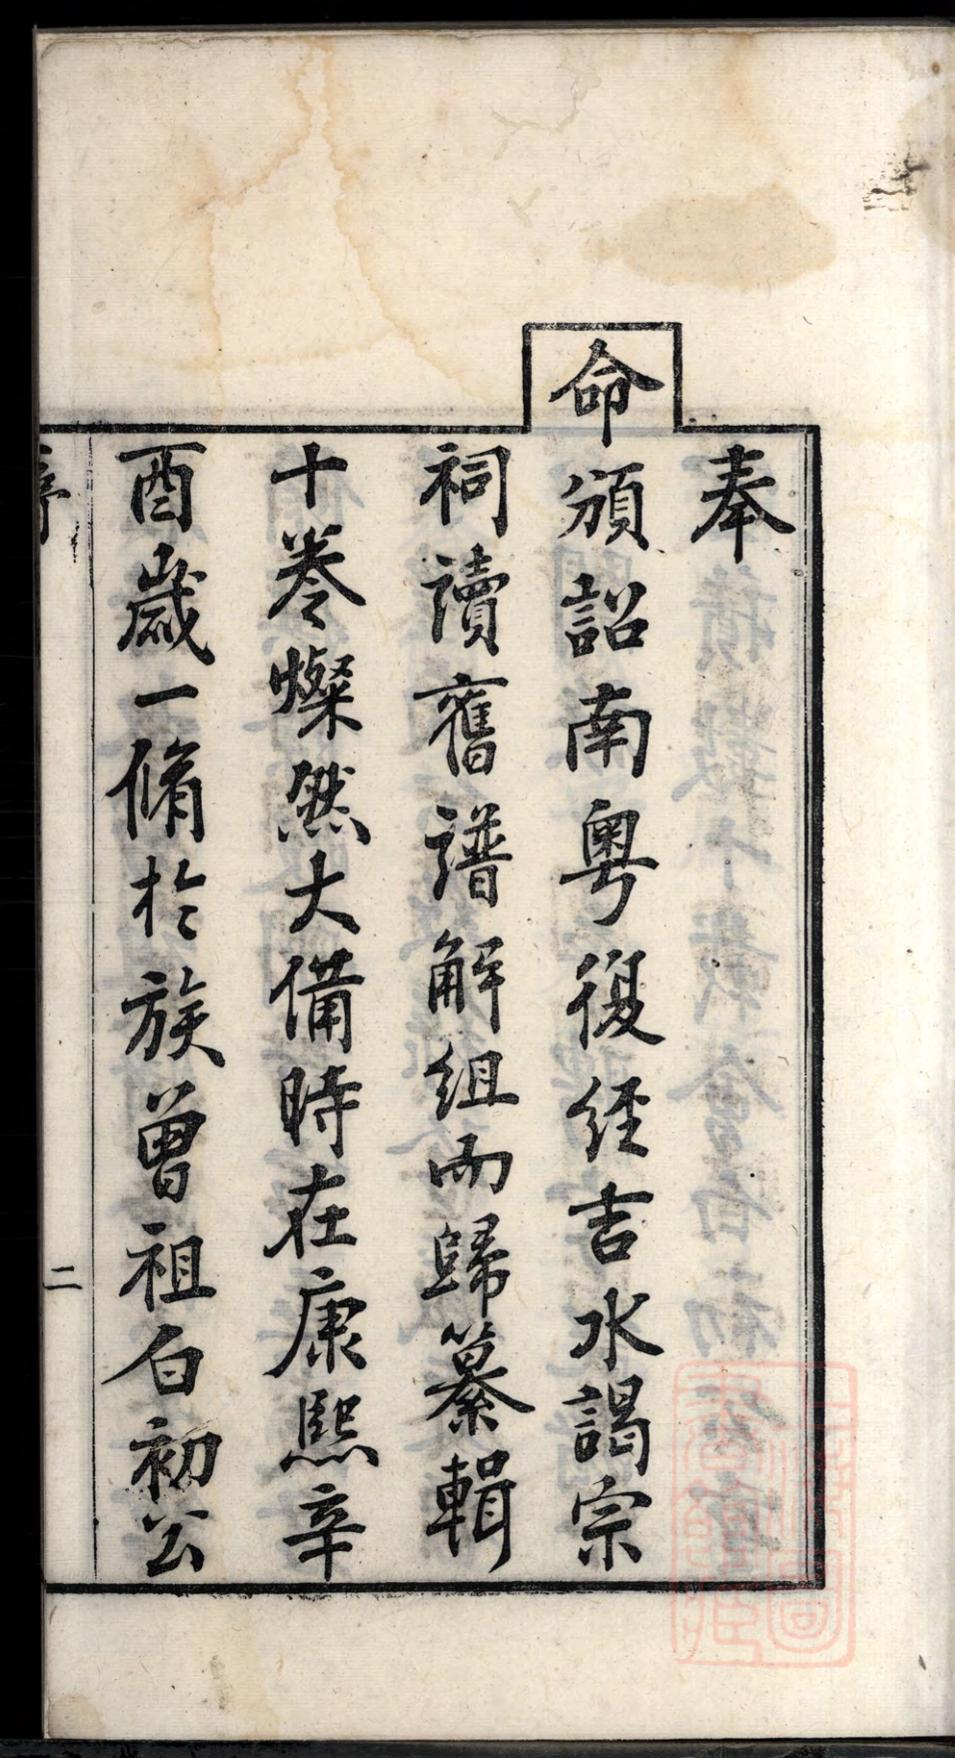 奉
命頒詔南粵復經吉水謁宗
祠讀舊譜解組而歸纂輯
十卷燦然大備時在康熙辛
酉歲一脩於族曾祖白初公
序
二